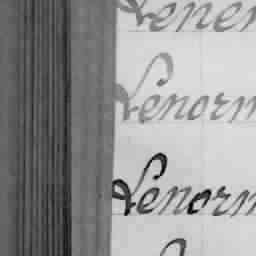 Lener
Lenorm
Lenorm